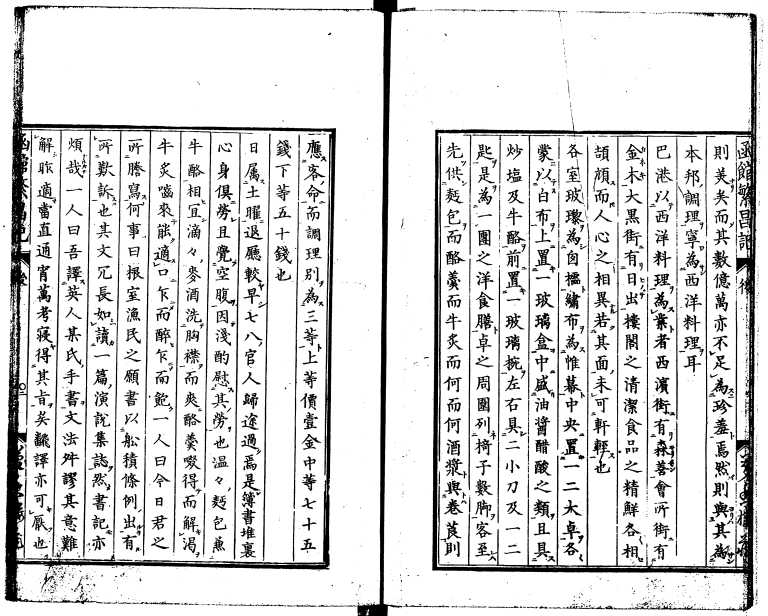 函館繁昌記
則美矣而其數億萬亦不足為珍羞焉然則與其為
本邦調理寧為西洋料理耳
巴港以西洋料理為業者西濱街有森善會所街有
金木大黑街有日出樓閣之清潔食品之精鮮各相
頡頏而人心之相異若其面未可軒輊也
各室玻瓈為窗襦繡布為帷幕中央置一二大卓各
蒙以白布上置一玻璃盒中盛油醬醋酸之類且具
炒塩及牛酪前置一玻璃椀左右具二小刀及一二
匙是為一團之洋食膳卓之周圍列椅子數脚客至
先供麪包而酪羹而牛炙而何而何酒漿與卷莨則
應客命而調理別為三等上等價壹金中等七十五
錢下等五十錢也
日属土曜退廳較早七八官人歸途過焉是簿書堆裏
心身俱勞且覺空腹因淺酌慰其勞也温々麪包薫
牛酪相宜滴々麥酒洗胸襟而爽酪羹啜得而解渴
牛炙嚙來能適口乍而醉乍而飽一人曰今日君之
所謄寫何事曰根室漁民之願書以舩積條例出有
所歎訴也其文冗長如讀一篇演說集誌然書記亦
煩哉一人曰吾譯英人某氏手書文法舛謬其意難
解昨適當直通宵萬考寝得其旨矣飜譯亦可厭也